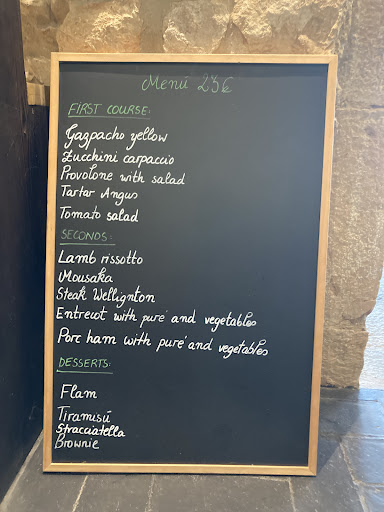 Menú 23€
FIRST COURSE:
Gazpacho yellow
Zucchini carpaccio
Provolone with salad
Tartar Angus
Tomato salad
SECONDS:
Lamb rissotto
Mousaka
Steak Wellignton
Entrecot with puré and vegetables
Porc ham with puré and vegetables
DESSERTS:
Flam
Tiramisú
Stracciatella
Brownie